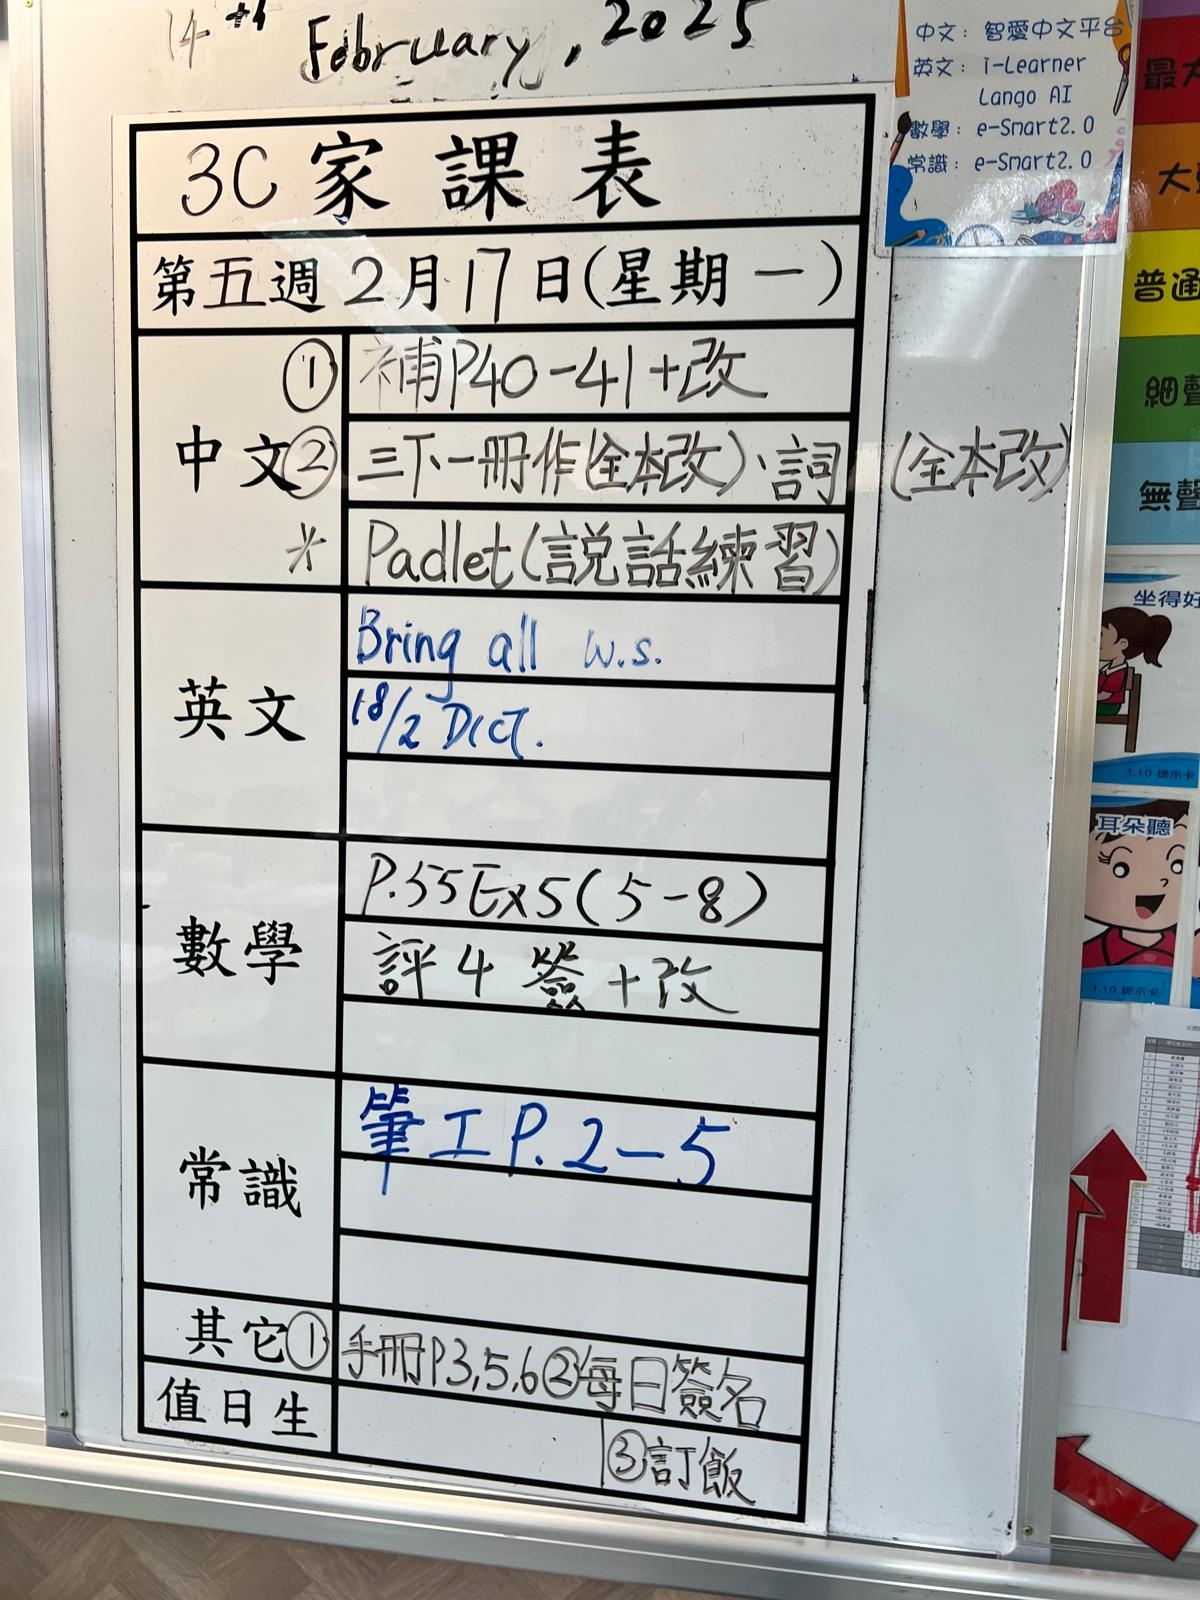 14th February, 2025
3C家課表
第五週 2月17日(星期一)
中文
① 補P40-41+改
② 三下一冊作(全本改)、詞(全本改)
* Padlet(説話練習)
英文
Bring all w.s.
18/2 DICT.
數學
P.55Ex5(5-8)
評4 簽+改
常識
筆工P.2-5
其它 ①手冊P3,5,6②每日簽名
③訂飯
值日生
中文: 智愛中文平台
英文: i-Learner
Lango AI
數學: e-Smart2.0
常識: e-Smart2.0
最大
大
普通
細聲
無聲
坐得好
1.10 提示卡
耳朵聽
1.10 提示卡